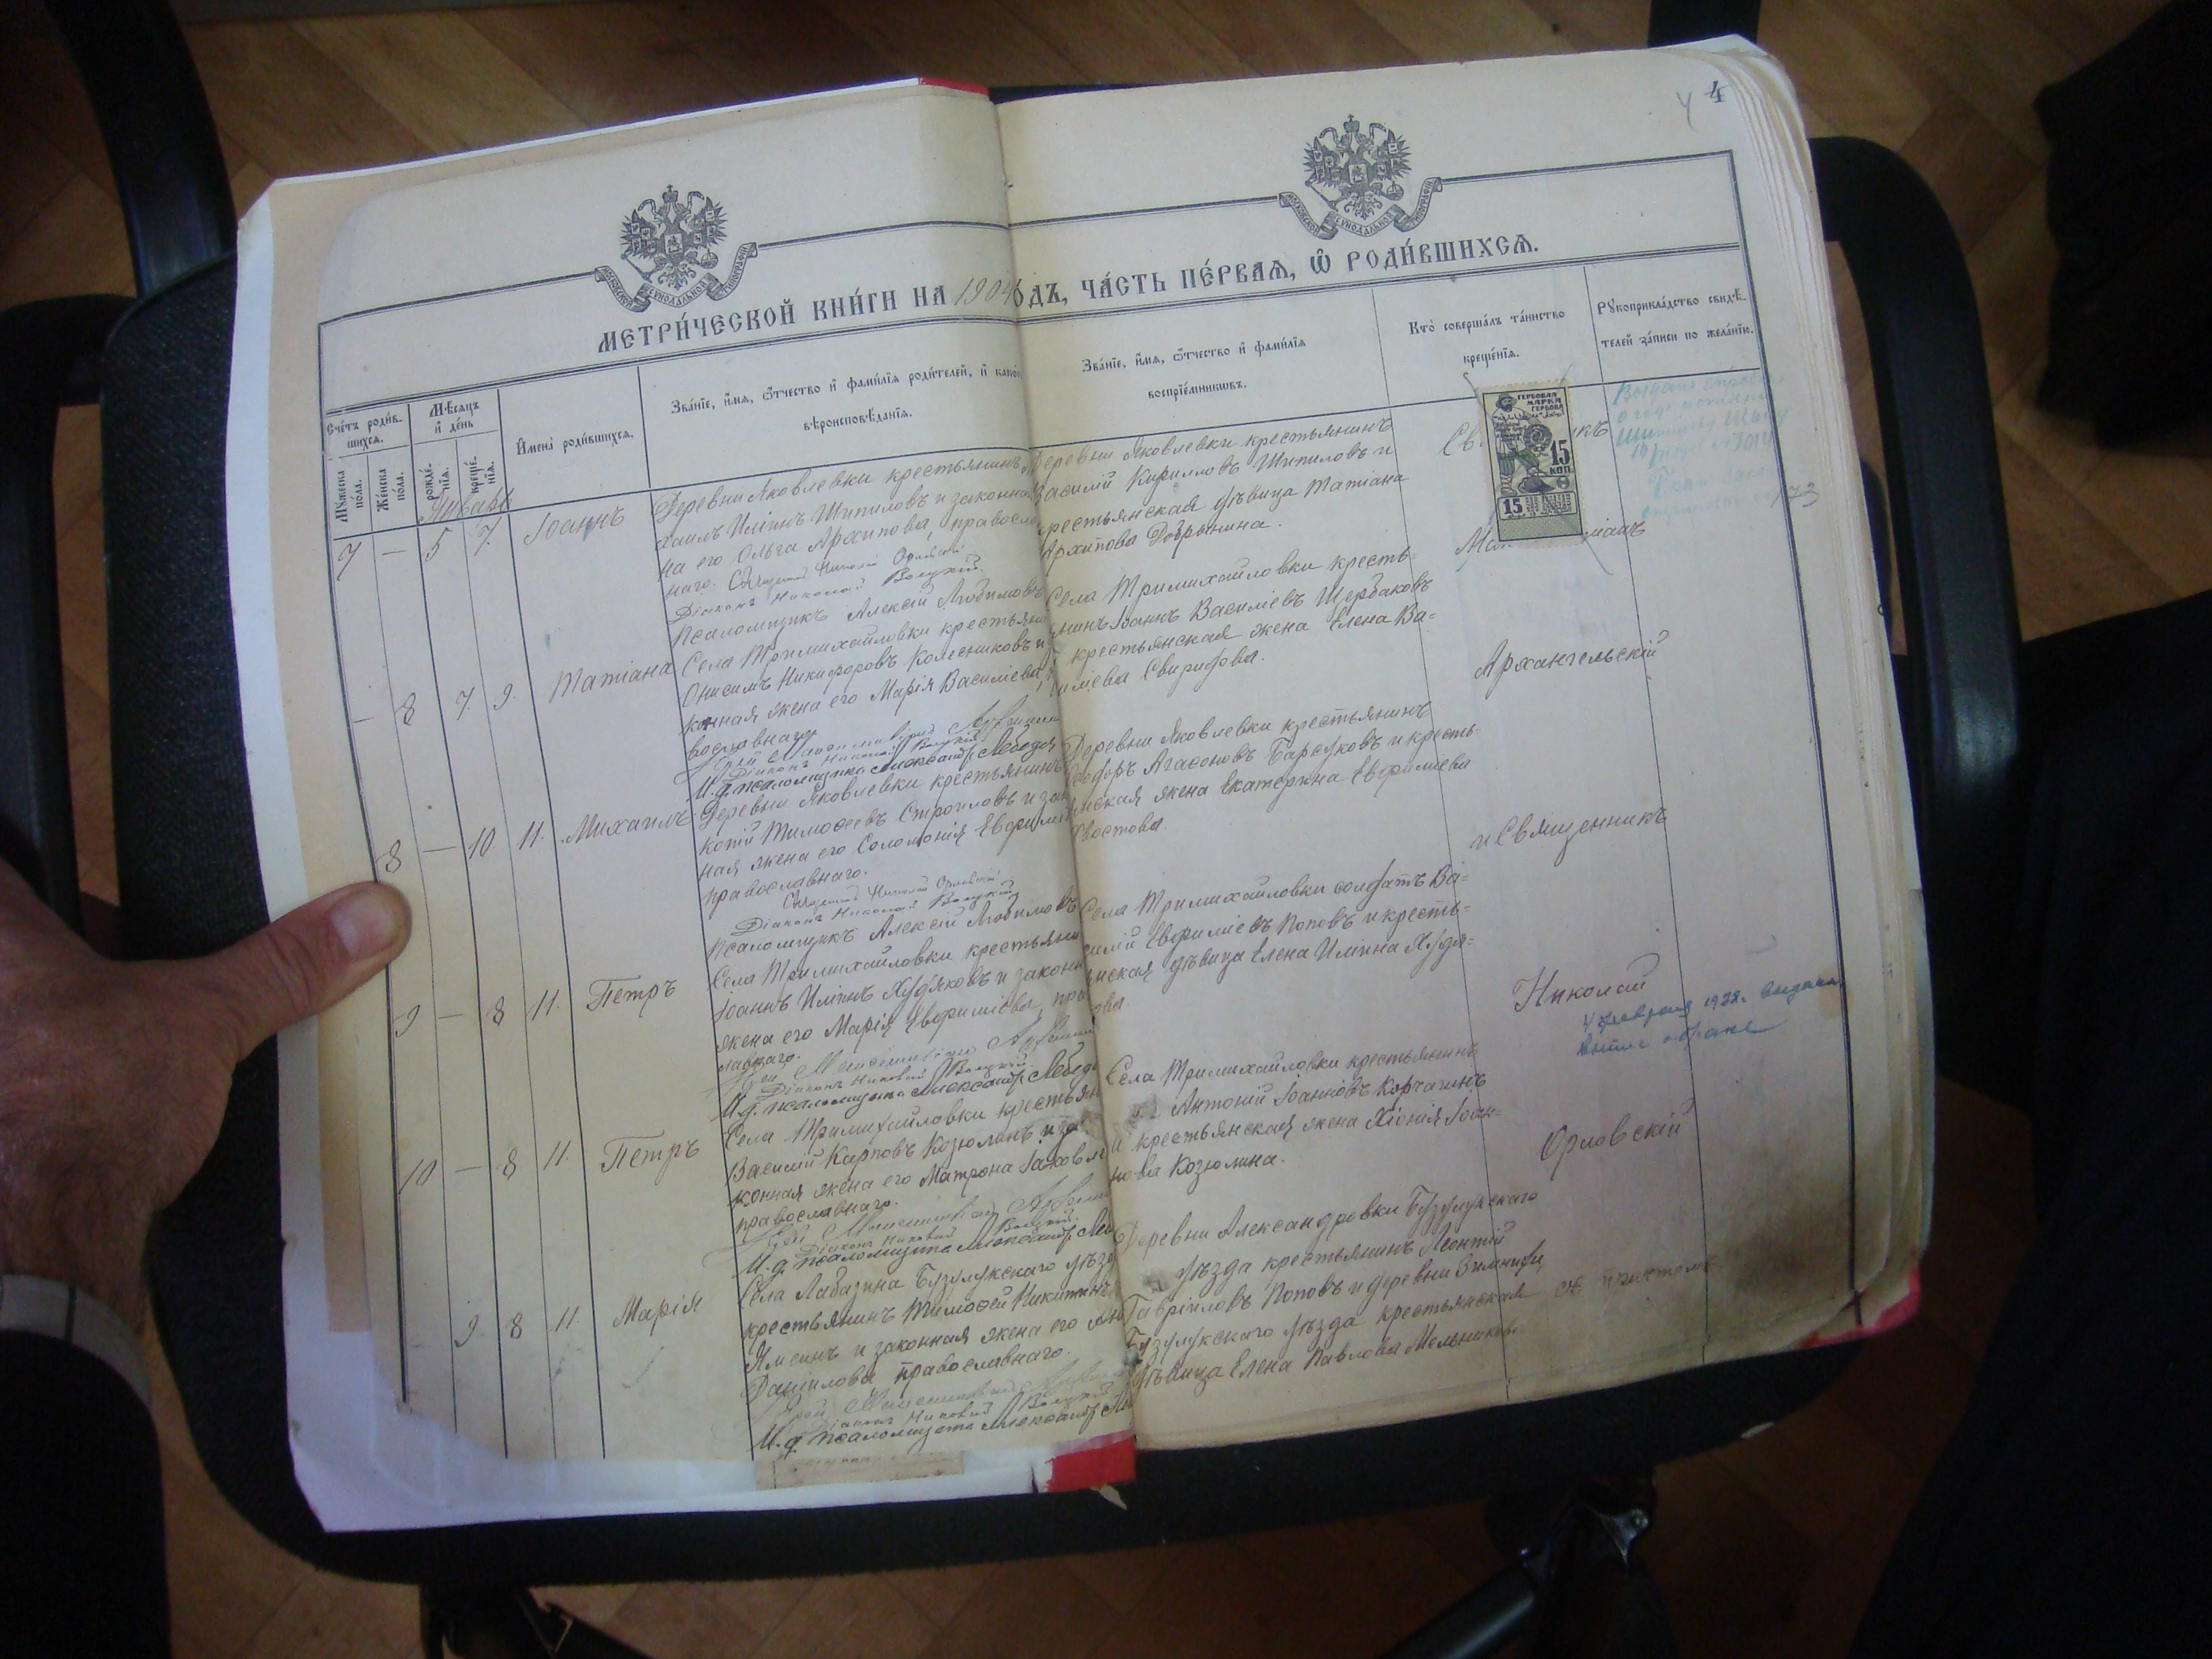 4 4
МЕТРИ́ЧЕСКОЙ КНИ́ГИ НА 1904 ГОДЪ, ЧА́СТЬ ПЕ́РВАѦ, Ѽ РОДИ́ВШИХСѦ.
Счетъ родив-
шихсѧ.
Мѣсѧцъ
и день
Мужеска пола.
Женска пола.
рожде-
ніѧ.
креще-
ніѧ.
Имена родившихсѧ.
Званіе, имѧ, ѿчество и фамиліѧ родителей, и какого
вѣроисповѣданіѧ.
Званіе, имѧ, ѿчество и фамиліѧ
воспріемниковъ.
Кто совершалъ таинство
крещеніѧ.
Рукоприкладство свидѣ-
телей записи по желанію.
Январь
7 — 5 7. Іоаннъ
Деревни Яковлевки крестьянинъ
хаилъ Иліинъ Шипиловъ и законна
на его Ольга Архипова, правосла
наго. Священникъ Николай Орловскій
Діаконъ Николай Волцкій.
Псаломщикъ Алексій Любимовъ
Деревни Яковлевки крестьянинъ
Василій Кирилловъ Шипиловъ и
крестьянская дѣвица Татіана
Архипова Добрынина.
— 8 7 9. Татіана
Села Тримихайловки крестьяни
Онисимъ Никифоровъ Колесниковъ и
конная жена его Марія Василіева,
вославнаго
Діаконъ Николай
И. д. псаломщика Александр. Лебедев
Села Тримихайловки кресть=
янинъ Іоаннъ Василіевъ Щербаковъ
и крестьянская жена Елена Ва=
силіева Свиридова.
8 — 10 11. Михаилъ
Деревни Яковлевки крестьянинъ
котій Тимофеевъ Строиловъ и зак
ная жена его Соломонія Евфиміе
православнаго.
Священникъ Николай Орловскій
Діаконъ Николай Волцкій
Псаломщикъ Алексій Любимовъ
Деревни Яковлевки крестьянинъ
Агафоновъ Барсуковъ и кресть-
янская жена Екатерина Евфиміева
Хвостова.
9 — 8 11. Петръ
Села Тримихайловки крестьяни
Іоаннъ Иліинъ Худяковъ и законн
жена его Марія Евфиміева, пра
лавнаго.
Діаконъ Николай
И. д. псаломщика Александр. Лебеде
Села Тримихайловки солдатъ Ва=
силій Евфиміевъ Поповъ и кресть=
янская дѣвица Елена Иліина Худя=
кова.
10 — 8 11. Петръ
Села Тримихайловки крестьян
Василій Карповъ Козюлинъ и за
конная жена его Матрона Іаковле
православнаго.
Діаконъ Николай
И. д. псаломщика Александр. Ле
Села Тримихайловки крестьянинъ
Антоній Іоанновъ Корчагинъ
и крестьянская жена Хіонія Іоан=
нова Козюлина.
9 8 11. Марія
Села Лабазина Бузулукскаго уѣзд
крестьянинъ Тимофей Никитинъ
и законная жена его
Даніилова православнаго.
Діаконъ Николай
И. д. псаломщика Александр.
Деревни Александровки Бузулукскаго
уѣзда крестьянинъ Леонтій
Гавріиловъ Поповъ и деревни
Бузулукскаго уѣзда крестьянская
дѣвица Елена Павлова Мельникова
Архангельскій
и Священникъ
Николай
Орловскій
4 февраля 1928г. выдана
ГЕРБОВАЯ
МАРКА
15
КОП
15